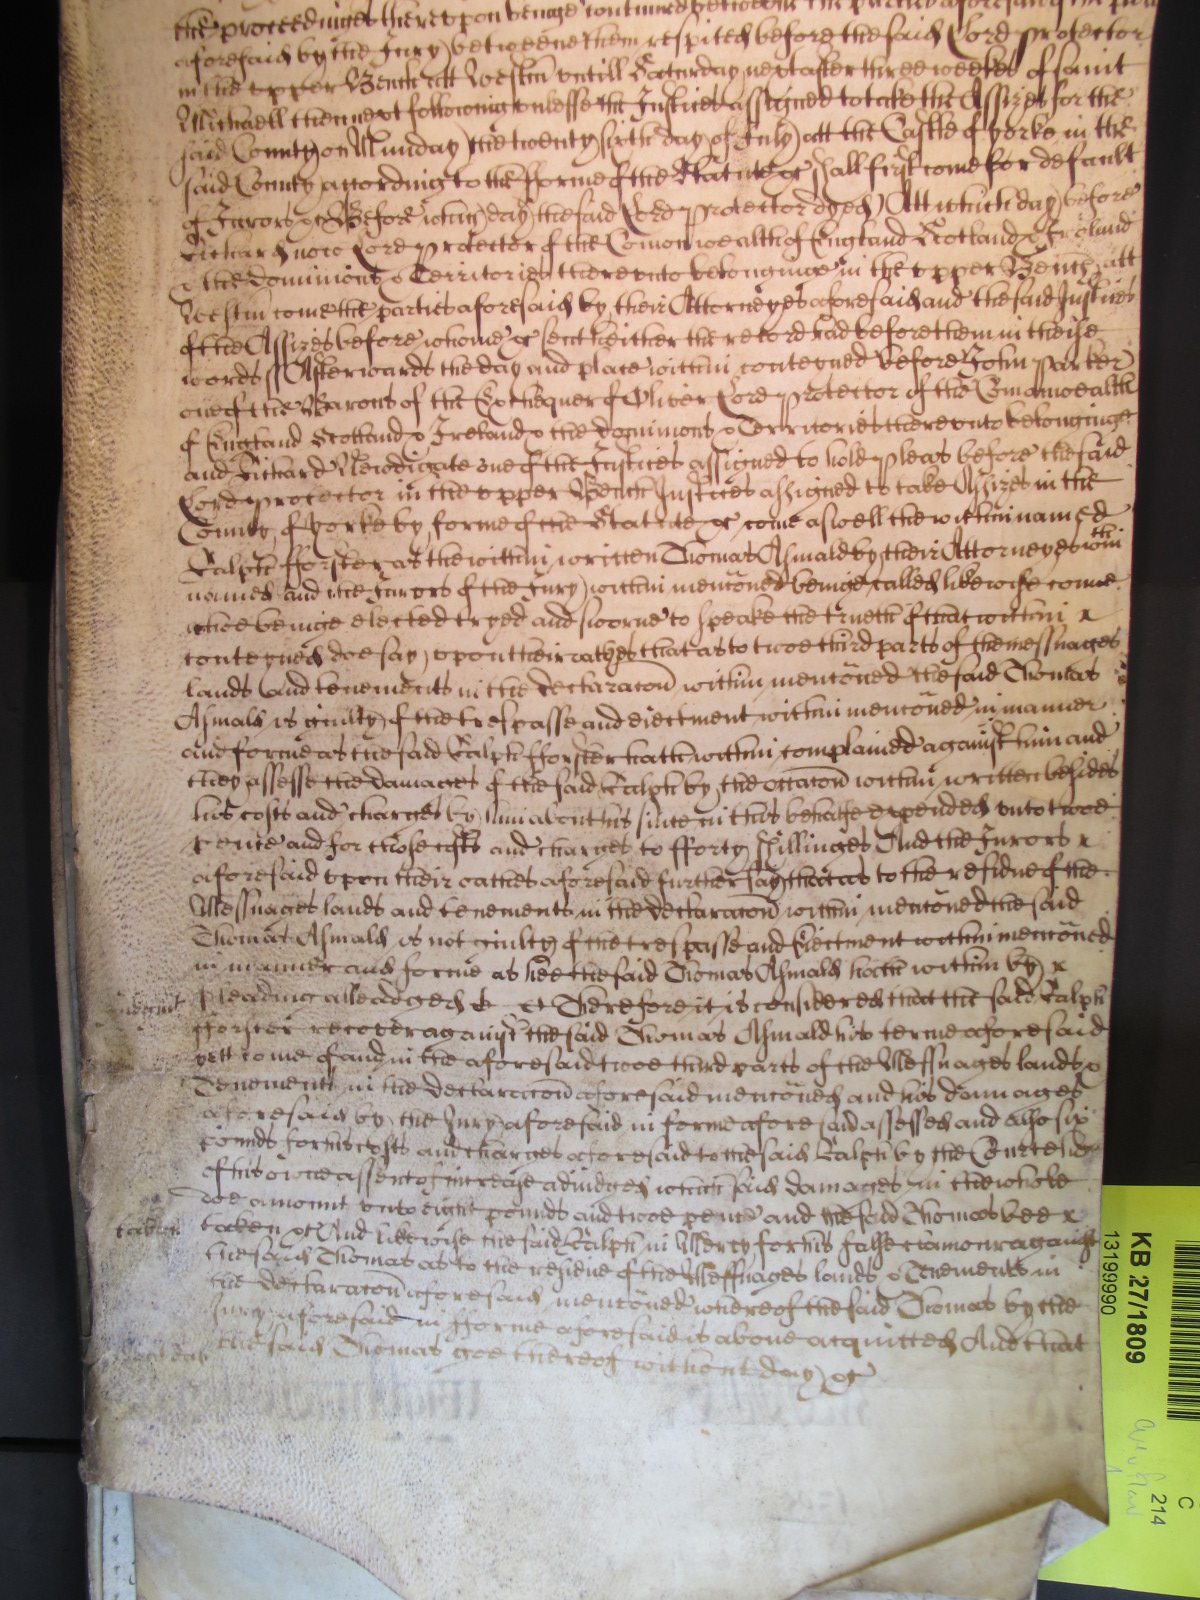 the proceedinges thereupon beinge continued betweene the parties aforesaid of the plea
aforesaid by the Jury betweene them respited before the said Lord Protector
in the upper Bench att Westm untill Saturday next after three weekes of saint
Michaell then next following unlesse the Justices assigned to take the Assizes for the
said County on Munday the twenty sixth day of July att the Castle of Yorke in the
said County according to the forme of the Statute &c shall first come for default
of Jurors &c Before which day the said Lord Protector dyed Att which day before
Richard now Lord Protector of the Comonwealth of England Scotland & Ireland
& the Dominions & Territories thereunto belonginge in the upper Bench att
Westm come the parties aforesaid by their Attorneyes aforesaid and the said Justices
of the Assizes before whome &c sent hither the record had before them in theise
words ss Afterwards the day and place within conteyned before John Parker
one of the Barons of the Exchequer of Oliver Lord Protector of the Comonwealth
of England Scotland & Ireland & the Dominions & Territories thereunto belonginge
and Richard Newdigate one of the Justices assigned to hold Pleas before the said
Lord Protector in the upper Bench Justices assigned to take Assizes in the
County of Yorke by forme of the Statute &c come aswell the within named
Ralph fforster as the within written Thomas Asmald by their Attorneyes within
named and the Jurors of the Jury within menconed beinge called likewise come
whoe beinge elected tryed and sworne to speake the trueth of that within x
conteyned doe say upon their oathes that as to twoe third parts of the messuages
lands and tenements in the declaracon within menconed the said Thomas
Asmald is guilty of the trespasse and eiectment within menconed in manner
and forme as the said Ralph fforster hath within complained against him and
they assesse the damages of the said Ralph by the occacon within written besides
his costs and charges by him about his suite in this behalfe expended unto twoe
pence and for those costs and charges to fforty shillinges And the Jurors x
aforesaid upon their oathes aforesaid further say that as to the residue of the
Messuages lands and tenements in the declaracon within menconed the said
Thomas Asmald is not guilty of the trespasse and Eiectment within menconed
in manner and forme as hee the said Thomas Asmald hath within by x
pleading alleadged Therefore it is considered that the said Ralph
fforster recover against the said Thomas Asmald his terme aforesaid
yett to come of and in the aforesaid twoe third parts of the Messuages lands &
Tenements in the declaracon aforesaid menconed and his dammages
aforesaid by the Jury aforesaid in forme aforesaid assessed and also six
pounds for his costs and charges aforesaid to the said Ralph by the Court
of his owne assent of increase adiudged which said damages in the whole
doe amount unto eight pounds and twoe pence and the said Thomas bee x
taken
taken &c And likewise the said Ralph in Mercy for his false clamour against
the said Thomas as to the residue of the Messuages lands & Tenements in
the declaracon aforesaid menconed whereof the said Thomas by the
Jury aforesaid in fforme aforesaid is above acquitted And that
the said Thomas goe thereof without day &c
KB 27/1809
13199990
C
214